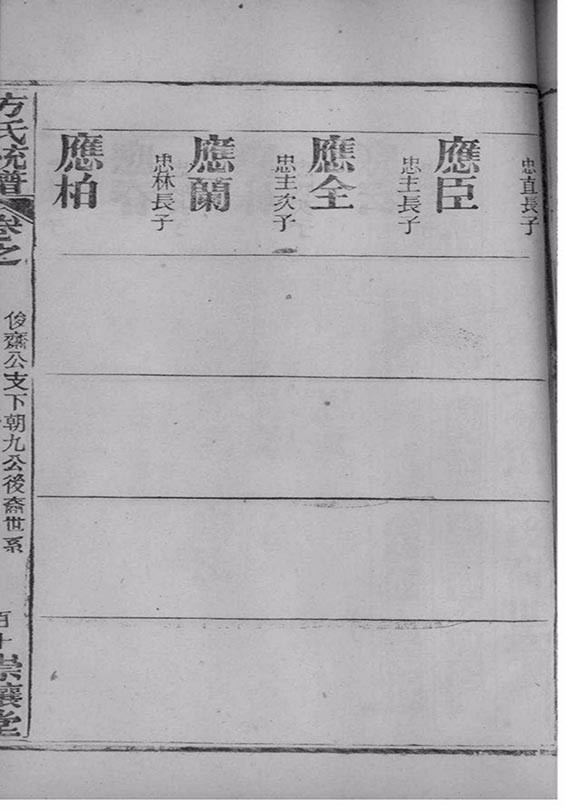 忠直長子
應臣
忠主長子
應全
忠主次子
應蘭
忠林長子
應柏
方氏統譜
卷之
俊齋公支下朝九公後裔世系
百十
崇讓堂